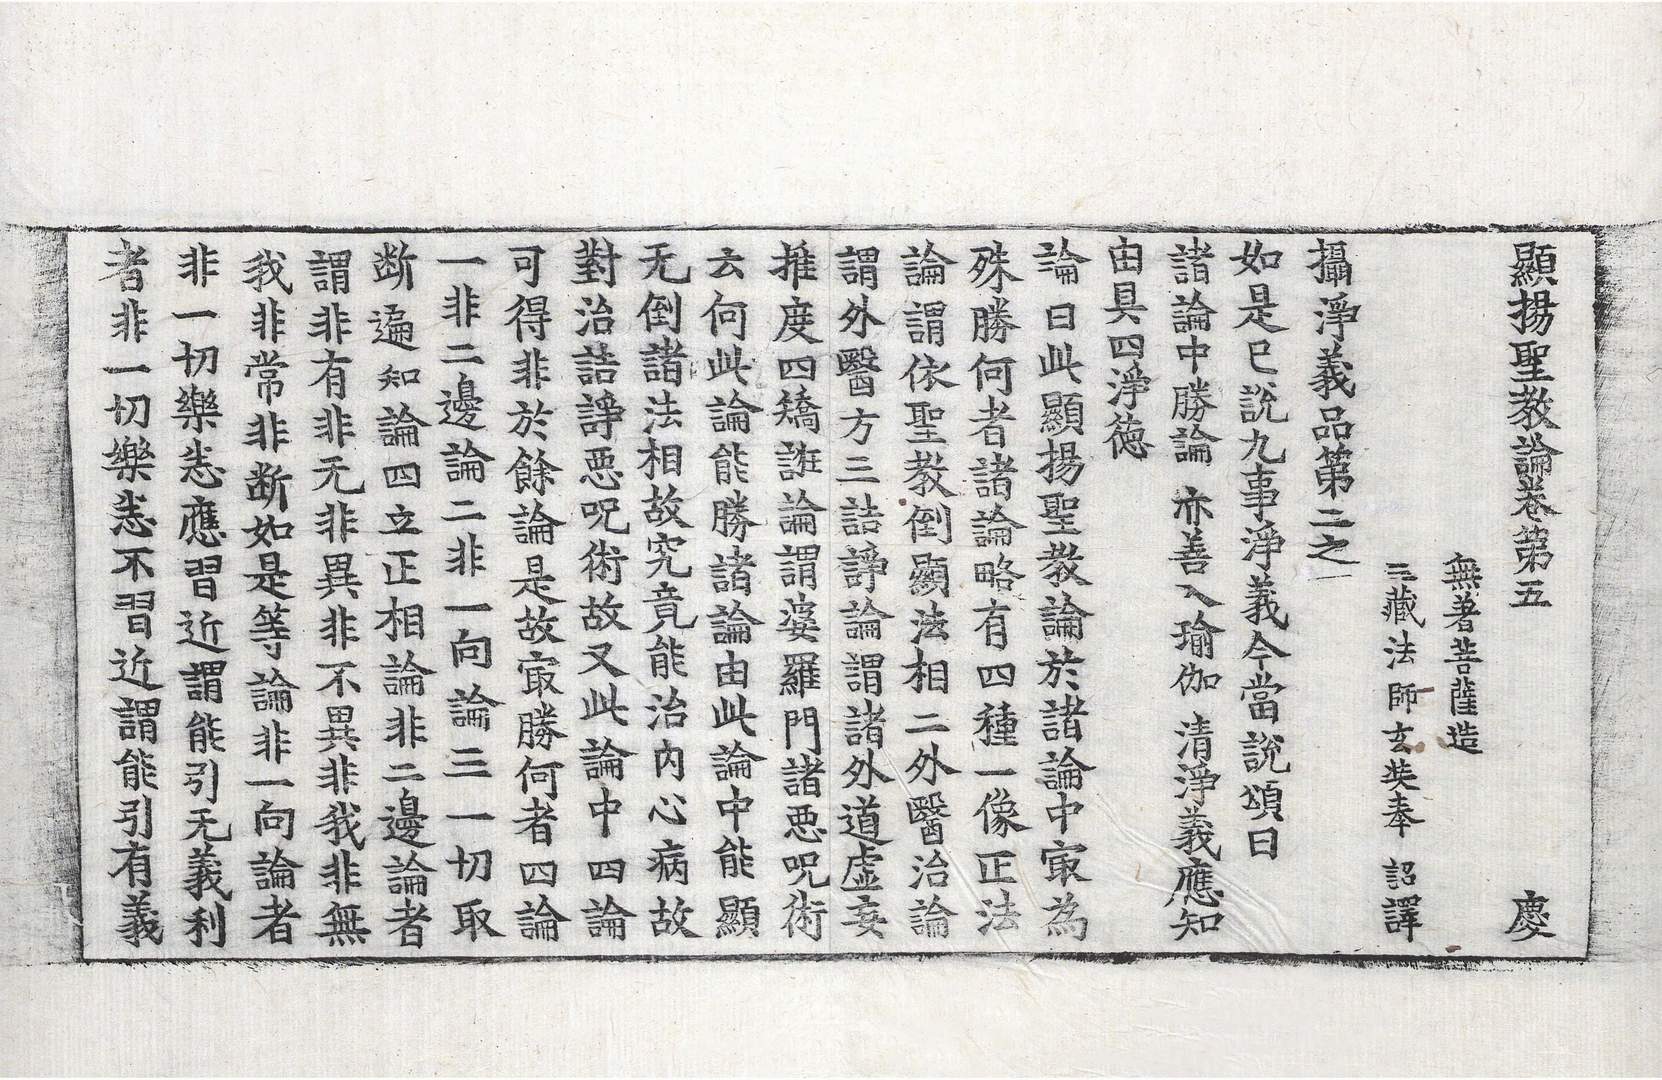 顯揚聖教論卷第五 慶
無著菩薩造
三藏法師玄奘奉 詔譯
攝淨義品第二之一
如是已說九事淨義今當說頌曰
諸論中勝論 亦善入瑜伽 清淨義應知
由具四淨德
論曰此顯揚聖教論於諸論中㝡為
殊勝何者諸論略有四種一像正法
論謂依聖教倒顯法相二外醫治論
謂外醫方三詰諍論謂諸外道虛妄
推度四矯誑論謂婆羅門諸惡呪術
云何此論能勝諸論由此論中能顯
无倒諸法相故究竟能治內心病故
對治詰諍惡呪術故又此論中四論
可得非於餘論是故㝡勝何者四論
一非二邊論二非一向論三一切取
断遍知論四立正相論非二邊論者
謂非有非无非異非不異非我非無
我非常非断如是等論非一向論者
非一切樂恙應習近謂能引无義利
者非一切樂恙不習近謂能引有義